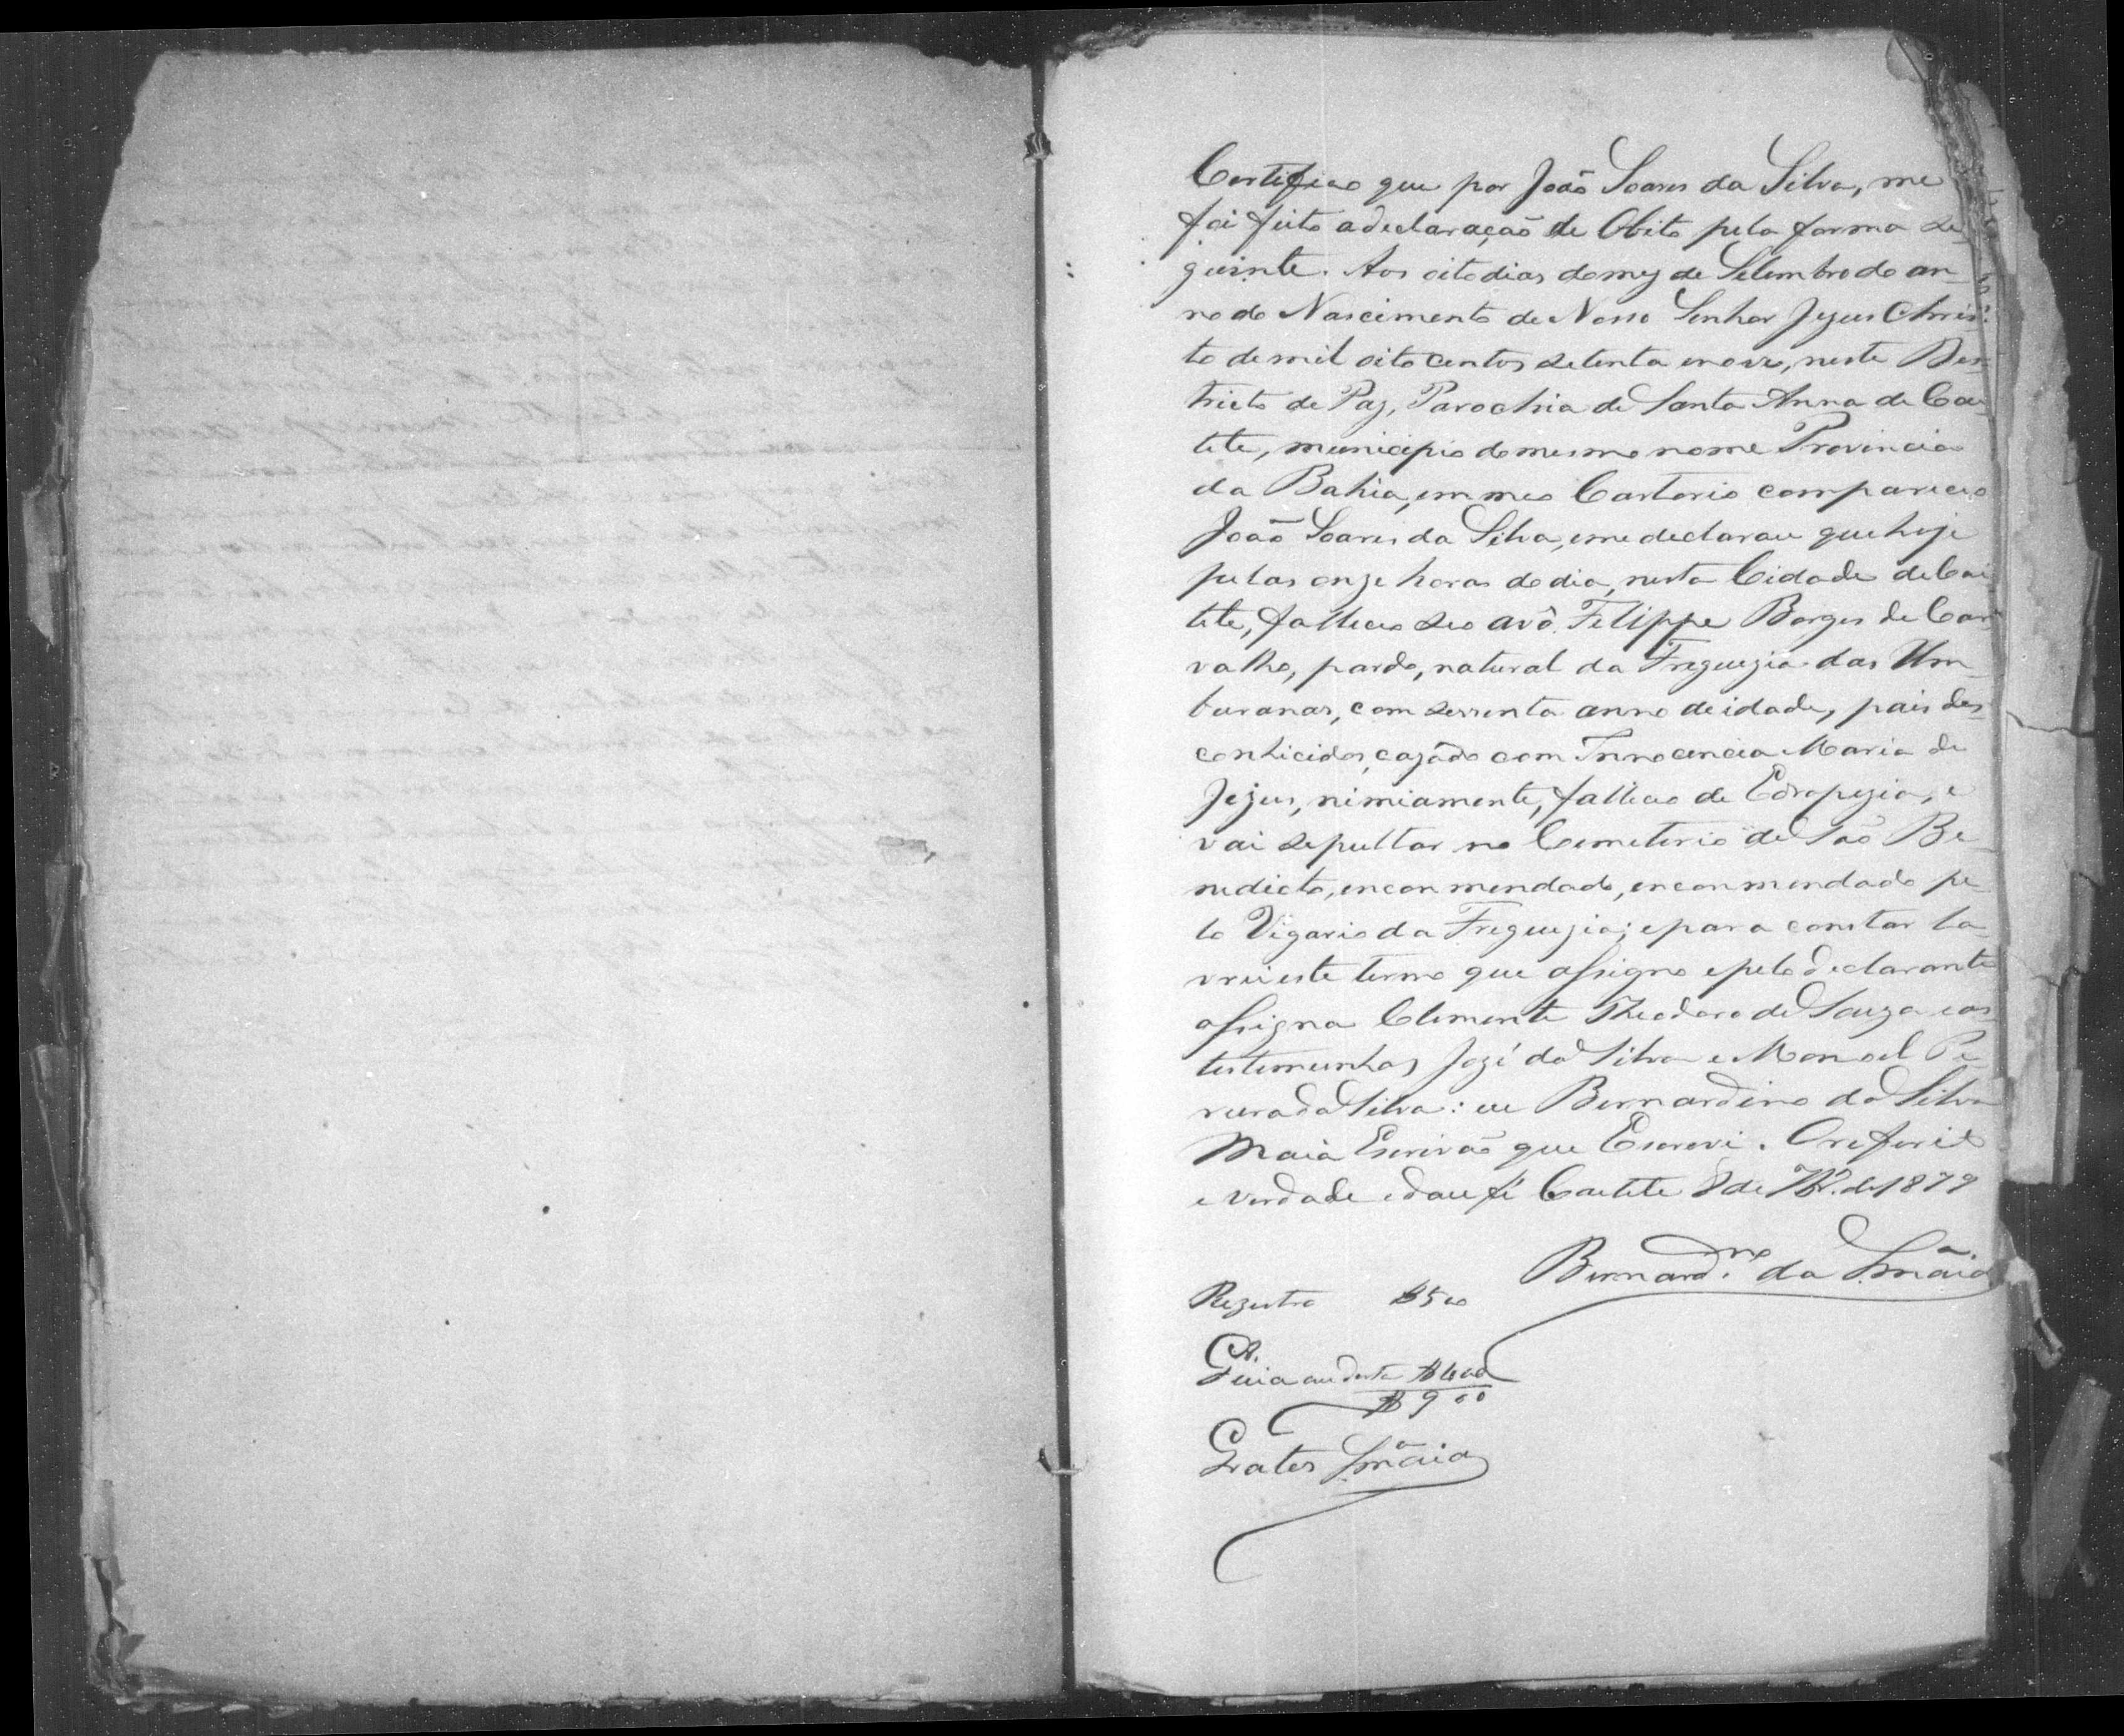 Certifico que por João Soares da Silva, me
foi feito a declaração de Obito pela forma se-
guinte. Aos oito dias do mez de Setembro do an-
no do Nascimento de Nosso Senhor Jezus Chris-
to de mil oito centos setenta e nove, neste Des-
tricto de Paz, Parochia de Santa Anna de Cae-
tete, municipio do mesmo nome Provincia
da Bahia, em meo Cartorio compareceo
João Soares da Silva, e me declarou que hoje
pelas onze horas do dia, nesta Cidade de Cai-
tete, falleceo seo avô Felippe Borges de Car-
valho, pardo, natural da Freguezia das Um-
buranas, com sessenta anno de idade, pais des-
conhicidos, cazado com Innocencia Maria de
Jezus, nimiamente, falleceo de Edropezia, e
vai sepultar no Cemeterio de São Be-
nedicto, enconmendado, enconmendado pe-
lo Vigario da Freguezia; e para constar la-
vrei este termo que assigno e pelo declarante
assigna Clemente Theodoro de Souza e as
testemunhas Jozé da Silva e Manoel Pe-
reira da Silva: eu Bernardino da Silva
Maia Escrivão que Escrevi. O referido
e verdade e dou fé Caetete 8 de 7br.º de 1879
Bernard.no da S.a Maia
Registro $500
Guia $400
$900
Grates S.a Maia